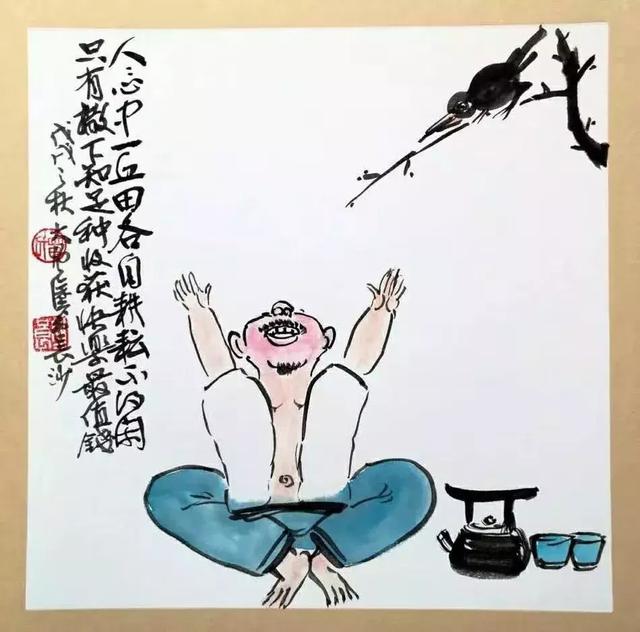 人心中一丘田各自耕耘不得闲
只有撒下知足种收获快乐最值钱
戊戌之秋 长沙